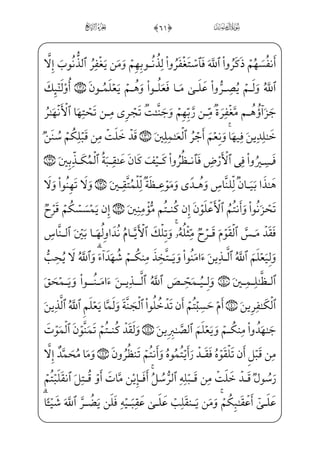 الجزء الرابع ﴿٦١﴾ سورة آل عمران
أَنفُسَهُمْ ذَكَرُوا۟ ٱللَّهَ فَٱسْتَغْفَرُوا۟ لِذُنُوبِهِمْ وَمَن يَغْفِرُ ٱلذُّنُوبَ إِلَّا
ٱللَّهُ وَلَمْ يُصِرُّوا۟ عَلَىٰ مَا فَعَلُوا۟ وَهُمْ يَعْلَمُونَ ۝ أُو۟لَٰٓئِكَ
جَزَآؤُهُم مَّغْفِرَةٌ مِّن رَّبِّهِمْ وَجَنَّٰتٌ تَجْرِى مِن تَحْتِهَا ٱلْأَنْهَٰرُ
خَٰلِدِينَ فِيهَا وَنِعْمَ أَجْرُ ٱلْعَٰمِلِينَ ۝ قَدْ خَلَتْ مِن قَبْلِكُمْ سُنَنٌ
فَسِيرُوا۟ فِى ٱلْأَرْضِ فَٱنظُرُوا۟ كَيْفَ كَانَ عَٰقِبَةُ ٱلْمُكَذِّبِينَ ۝
هَٰذَا بَيَانٌ لِّلنَّاسِ وَهُدًى وَمَوْعِظَةٌ لِّلْمُتَّقِينَ ۝ وَلَا تَهِنُوا۟ وَلَا
تَحْزَنُوا۟ وَأَنتُمُ ٱلْأَعْلَوْنَ إِن كُنتُم مُّؤْمِنِينَ ۝ إِن يَمْسَسْكُمْ قَرْحٌ
فَقَدْ مَسَّ ٱلْقَوْمَ قَرْحٌ مِّثْلُهُۥ وَتِلْكَ ٱلْأَيَّامُ نُدَاوِلُهَا بَيْنَ ٱلنَّاسِ
وَلِيَعْلَمَ ٱللَّهُ ٱلَّذِينَ ءَامَنُوا۟ وَيَتَّخِذَ مِنكُمْ شُهَدَآءَ وَٱللَّهُ لَا يُحِبُّ
ٱلظَّٰلِمِينَ ۝ وَلِيُمَحِّصَ ٱللَّهُ ٱلَّذِينَ ءَامَنُوا۟ وَيَمْحَقَ
ٱلْكَٰفِرِينَ ۝ أَمْ حَسِبْتُمْ أَن تَدْخُلُوا۟ ٱلْجَنَّةَ وَلَمَّا يَعْلَمِ ٱللَّهُ ٱلَّذِينَ
جَٰهَدُوا۟ مِنكُمْ وَيَعْلَمَ ٱلصَّٰبِرِينَ ۝ وَلَقَدْ كُنتُمْ تَمَنَّوْنَ ٱلْمَوْتَ
مِن قَبْلِ أَن تَلْقَوْهُ فَقَدْ رَأَيْتُمُوهُ وَأَنتُمْ تَنظُرُونَ ۝ وَمَا مُحَمَّدٌ إِلَّا
رَسُولٌ قَدْ خَلَتْ مِن قَبْلِهِ ٱلرُّسُلُ أَفَإِي۟ن مَّاتَ أَوْ قُتِلَ ٱنقَلَبْتُمْ
عَلَىٰٓ أَعْقَٰبِكُمْ وَمَن يَنقَلِبْ عَلَىٰ عَقِبَيْهِ فَلَن يَضُرَّ ٱللَّهَ شَيْـًٔا